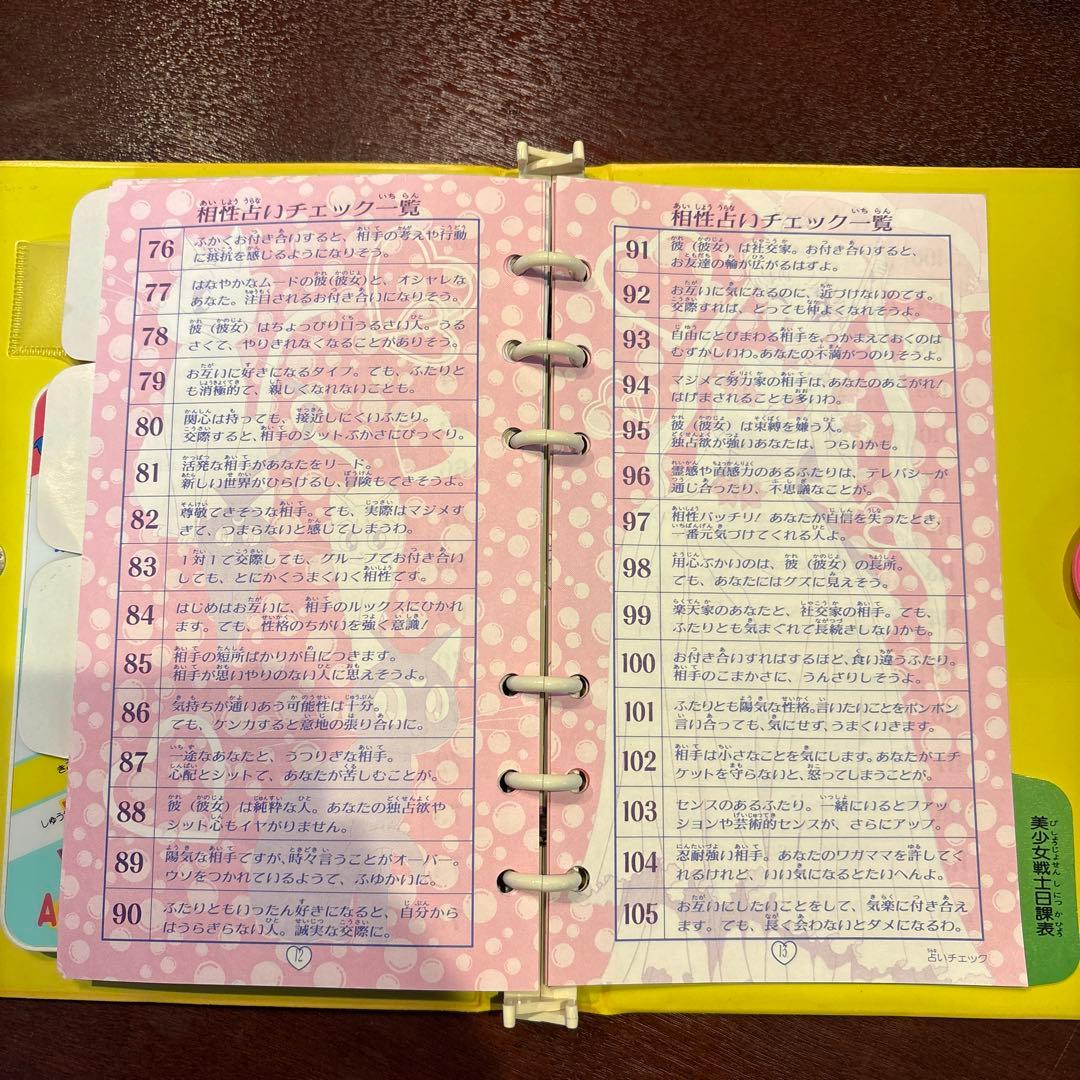 相性占いチェック一覧
76
ふかくお付き合いすると、相手の考えや行動
に抵抗を感じるようになりそう。
77
はなやかなムードの彼(彼女)と、オシャレな
あなた。注目されるお付き合いになりそう。
78
彼(彼女)はちょっぴり口うるさい人。うる
さくて、やりきれなくなることがありそう。
79
お互いに好きになるタイプ。でも、ふたりと
も消極的で、親しくなれないことも。
80
関心は持っても、接近しにくいふたり。
交際すると、相手のシットぶかさにびっくり。
81
活発な相手があなたをリード。
新しい世界がひらけるし、冒険もできそうよ。
82
尊敬できそうな相手。でも、実際はマジメす
ぎて、つまらないと感じてしまうわ。
83
1対1で交際しても、グループでお付き合い
しても、とにかくうまくいく相性です。
84
はじめはお互いに、相手のルックスにひかれ
ます。でも、性格のちがいを強く意識!
85
相手の短所ばかりが目につきます。
相手が思いやりのない人に思えそうよ。
86
気持ちが通いあう可能性は十分。
でも、ケンカすると意地の張り合いに。
87
一途なあなたと、うつりぎな相手。
心配とシットで、あなたが苦しむことが。
88
彼(彼女)は純粋な人。あなたの独占欲や
シット心もイヤがりません。
89
陽気な相手ですが、時々言うことがオーバー。
ウソをつかれているようで、ふゆかいに。
90
ふたりともいったん好きになると、自分から
はうらぎらない人。誠実な交際に。
12
相性占いチェック一覧
91
彼(彼女)は社交家。お付き合いすると、
お友達の輪が広がるはずよ。
92
お互いに気になるのに、近づけないのです。
交際すれば、とっても仲よくなれそうよ。
93
自由にとびまわる相手を、つかまえておくのは
むずかしいわ。あなたの不満がつのりそうよ。
94
マジメで努力家の相手は、あなたのあこがれ!
はげまされることも多いわ。
95
彼(彼女)は束縛を嫌う人。
独占欲が強いあなたは、つらいかも。
96
霊感や直感力のあるふたりは、テレパシーが
通じ合ったり、不思議なことが。
97
相性バッチリ!あなたが自信を失ったとき、
一番元気づけてくれる人よ。
98
用心ぶかいのは、彼(彼女)の長所。
でも、あなたにはグズに見えそう。
99
楽天家のあなたと、社交家の相手。でも、
ふたりとも気まぐれで長続きしないかも。
100
お付き合いすればするほど、食い違うふたり。
相手のこまかさに、うんざりしそうよ。
101
ふたりとも陽気な性格。言いたいことをポンポン
言い合っても、気にせず、うまくいきます。
102
相手は小さなことを気にします。あなたがエチ
ケットを守らないと、怒ってしまうことが。
103
センスのあるふたり。一緒にいるとファッ
ションや芸術的センスが、さらにアップ。
104
忍耐強い相手。あなたのワガママを許してく
れるけれど、いい気になるとたいへんよ。
105
お互いにしたいことをして、気楽に付き合え
ます。でも、長く会わないとダメになるわ。
13
占いチェック
美少女戦士日課表